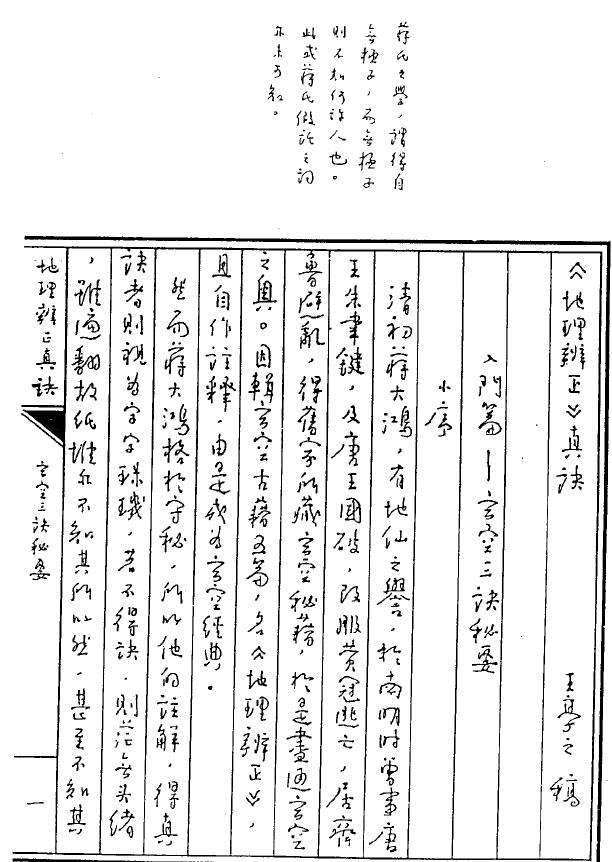 蔣氏之學，謂得自
無極子，而無極子
則不知何許人也。
此或蔣氏假託之詞
亦未可知。
《地理辨正》真訣　王亭之稿
入門篇——玄空三訣秘要
小序
清初蔣大鴻，有地仙之譽，於南明時嘗事唐
王朱聿鍵，及唐王國破，改服黃冠逃亡，居齊
魯避亂，得舊家所藏玄空秘籍，於是盡通玄空
之奧。因輯玄空古籍五篇，名《地理辨正》，
且自作註釋，由是成為玄空經典。
然而蔣大鴻格於守秘，所以他的註解，得真
訣者則視為字字珠璣，若不得訣，則茫無头緒
，雖遍翻故紙堆亦不知其所以然，甚至不知其
地理辨正真訣　玄空三訣秘要　一